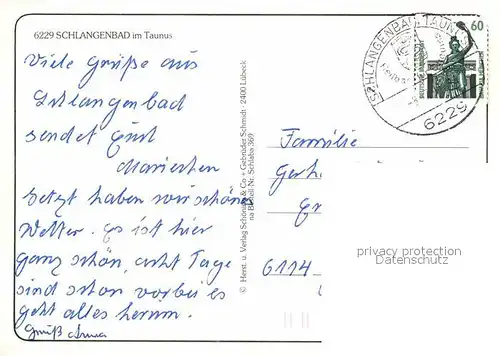 6229 SCHLANGENBAD im Taunus
Viele Grüße aus
Schlangenbad
sendet Euch
Mariechen
Jetzt haben wir schönes
Wetter. Es ist hier
ganz schön, acht Tage
sind schon vorbei es
geht alles herum.
Gruß Anna
© Herst. u. Verlag Schöning & Co + Gebrüder Schmidt · 2400 Lübeck
SCHLANGENBAD TAUNUS
6229
60
Familie
Gerh
Er
6114
privacy protection
Disclaimer